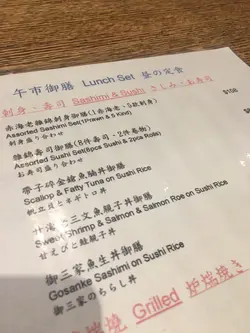 午市御膳 Lunch Set 昼の定食
刺身・寿司 Sashimi & Sushi さしみ・お寿司
赤海老雜錦刺身御膳(1赤海老、5款刺身) $108
Assorted Sashimi Set(1Prawn & 5 Kind)
刺身盛り合わせ
雜錦壽司御膳(8件壽司・2件卷物)
Assorted Sushi Set(8pcs Sushi & 2pcs Rolls)
お寿司盛り合わせ
帶子碎金槍魚腩丼御膳
Scallop & Fatty Tuna on Sushi Rice
帆立貝とネギトロ丼
甘海老三文魚親子丼御膳
Sweet Shrimp & Salmon & Salmon Roe on Sushi Rice
甘えびと鮭親子丼
御三家魚生丼御膳
Gosanke Sashimi on Sushi Rice
御三家のちらし丼
燒 Grilled 炉端焼き